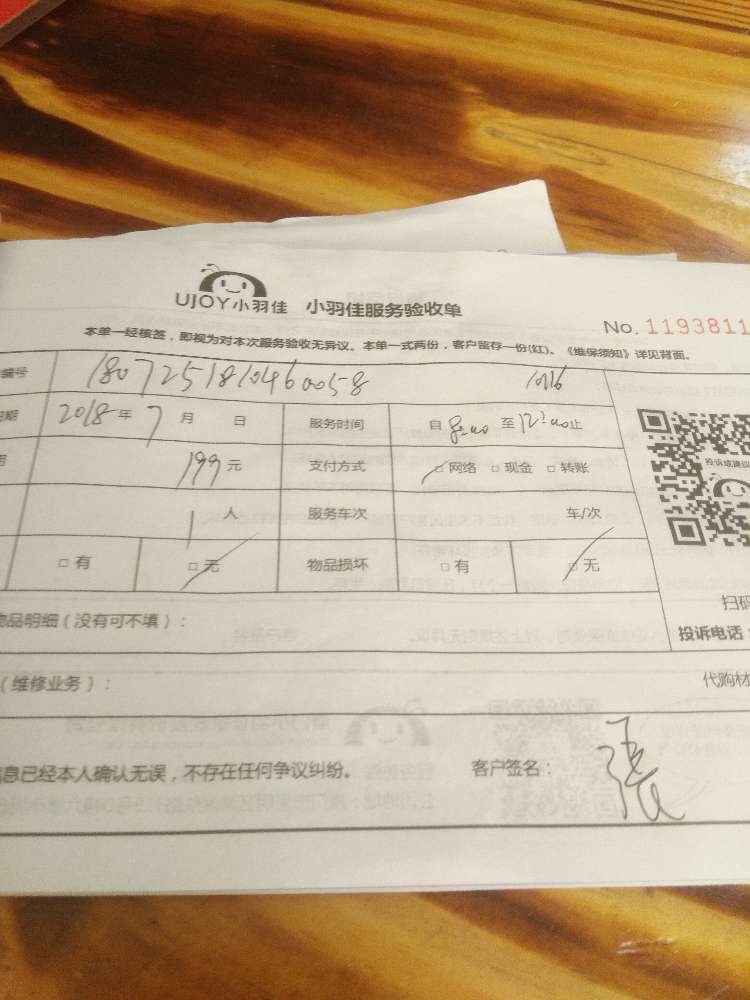 UJOY小羽佳 小羽佳服务验收单
No. 1193811
本单一经核签，即视为对本次服务验收无异议。本单一式两份，客户留存一份(红)。《维保须知》详见背面。
编号 1807251810460058
期 2018年 7月 日 服务时间 自 8:00 至 12:00止
199元 支付方式 □网络 □现金 □转账
1人 服务车次 车/次
□有 □无 物品损坏 □有 □无
扫码
物品明细（没有可不填）：
投诉电话：
（维修业务）：
代购材
息已经本人确认无误，不存在任何争议纠纷。 客户签名： 张